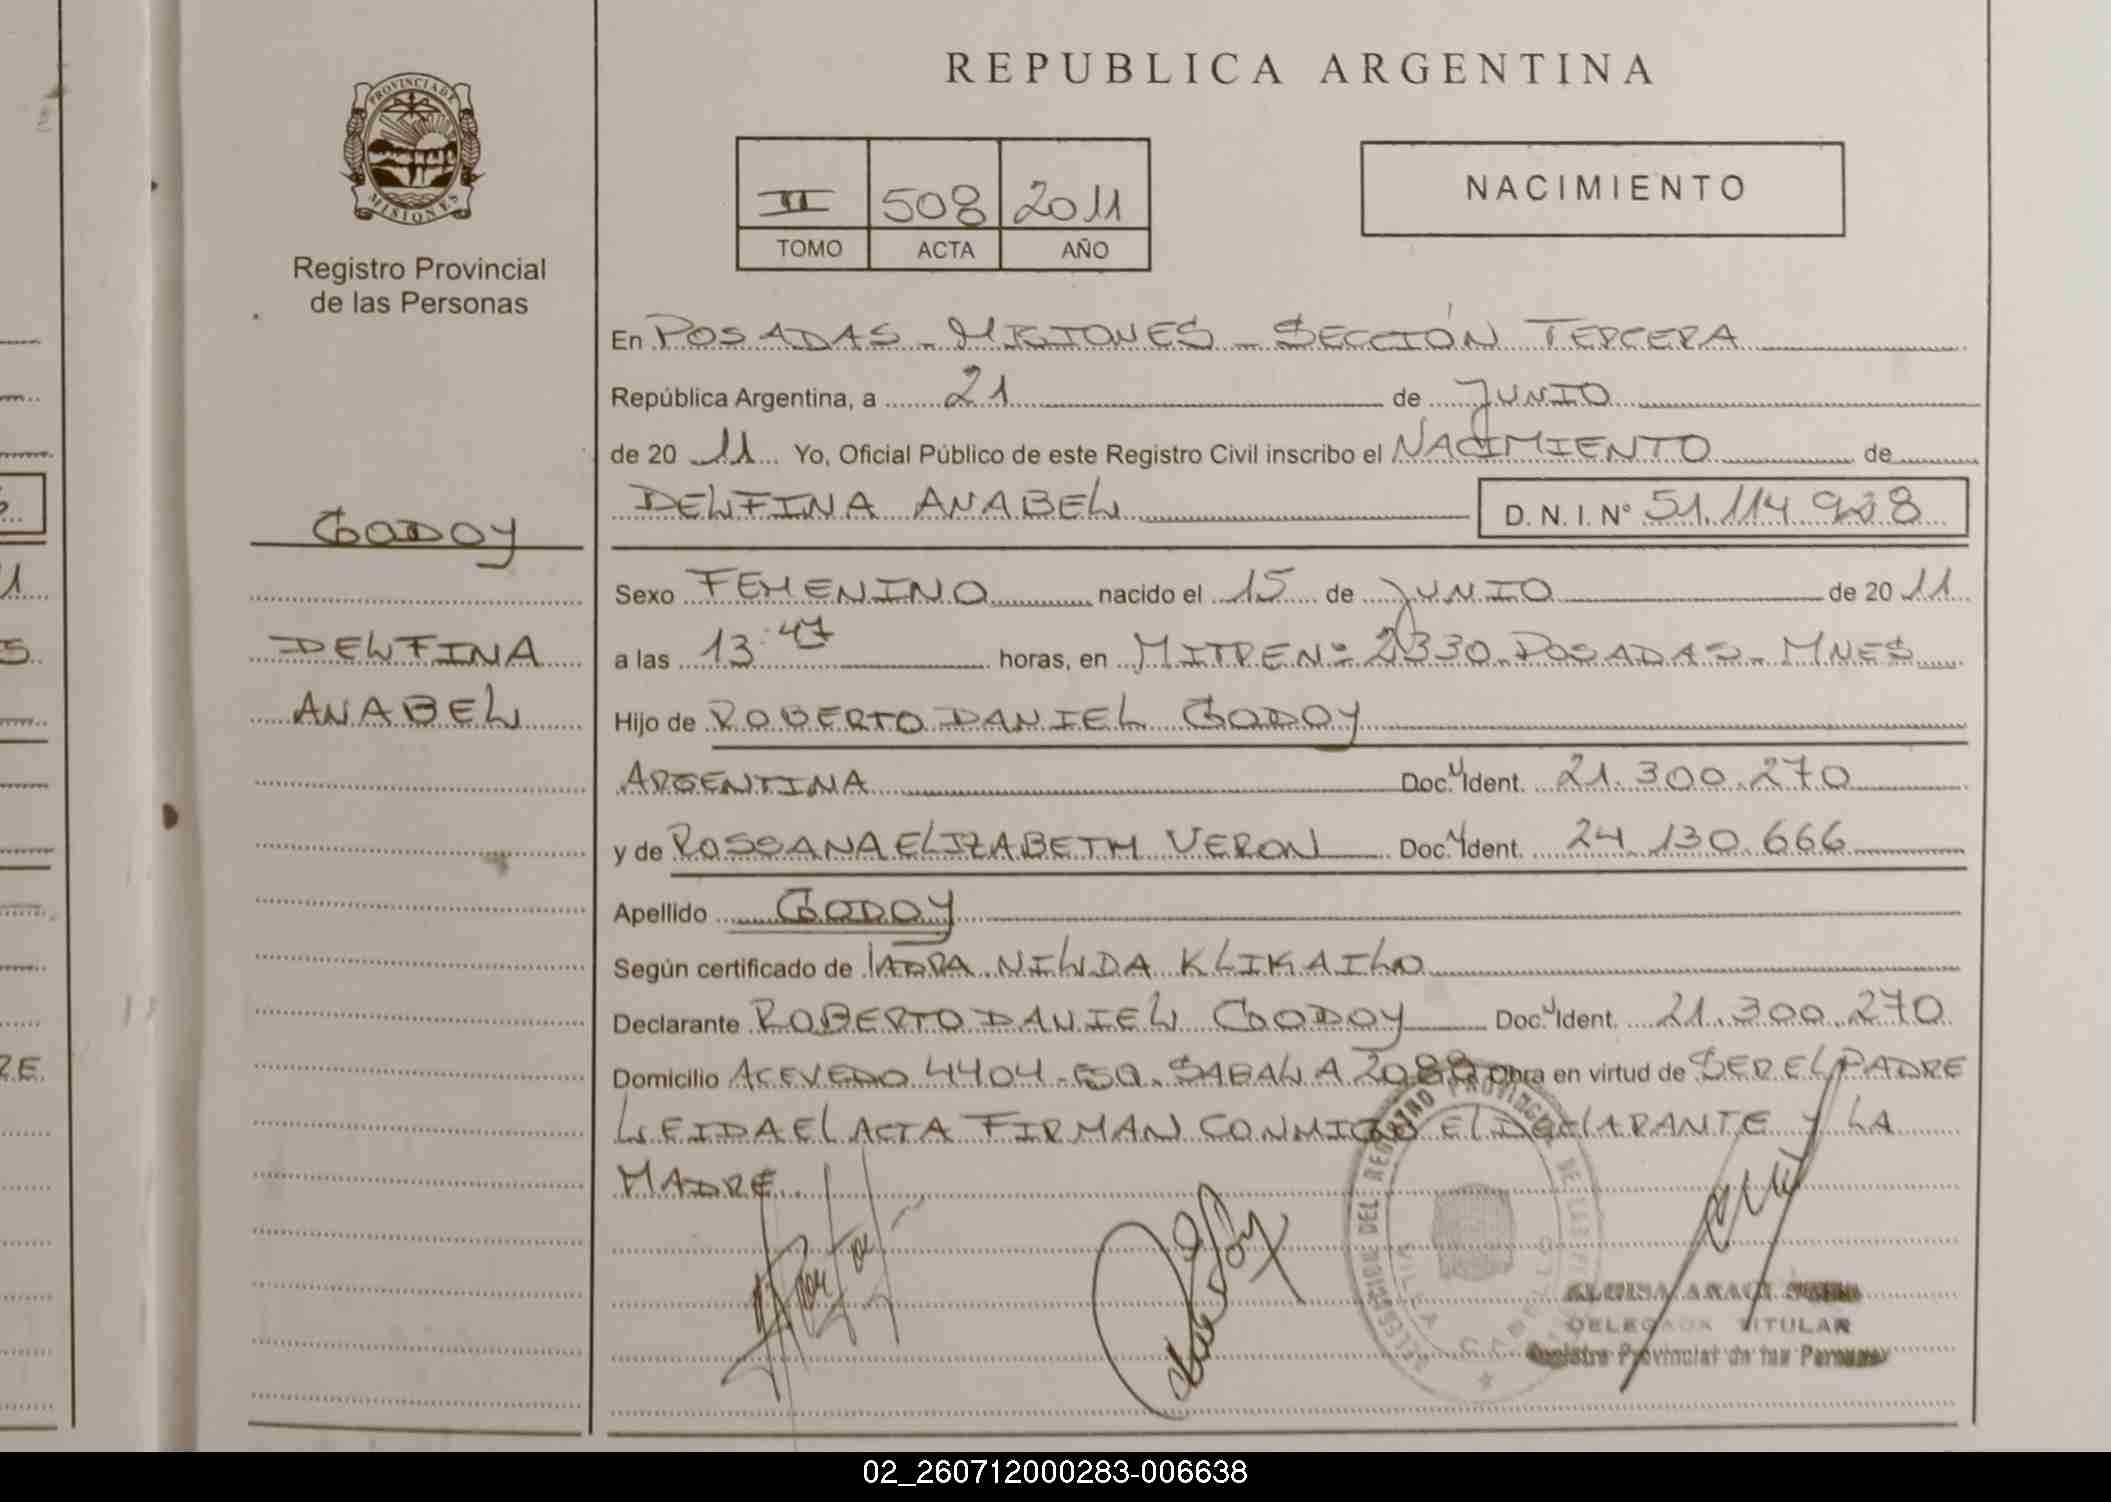 REPUBLICA ARGENTINA
PROVINCIA DE MISIONES
Registro Provincial
de las Personas
II 508 2011
TOMO ACTA AÑO
NACIMIENTO
En POSADAS - MISIONES - SECCIÓN TERCERA
República Argentina, a 21 de JUNIO
de 20 11 Yo, Oficial Público de este Registro Civil inscribo el NACIMIENTO de
DELFINA ANABEL D. N. I. Nº 51.114.928
GODOY
DELFINA
ANABEL
Sexo FEMENINO nacido el 15 de JUNIO de 20 11
a las 13:47 horas, en MITRE Nº 2330 POSADAS - MNES
Hijo de ROBERTO DANIEL GODOY
ARGENTINA Doc. y Ident. 21.300.270
y de ROSSANA ELIZABETH VERON Doc. y Ident. 24.130.666
Apellido GODOY
Según certificado de NILDA KLIKAILO
Declarante ROBERTO DANIEL GODOY Doc. y Ident. 21.300.270
Domicilio ACEVEDO 4404 - ESQ. Obra en virtud de SER EL PADRE
LEIDA EL ACTA FIRMAN CONMIGO EL DECLARANTE Y LA
MADRE.
DELEGACION DEL REGISTRO PROVINCIAL DE LAS
VILLA CABELLO
DELEGADA TITULAR
Registro Provincial de las Personas
02_260712000283-006638
RE